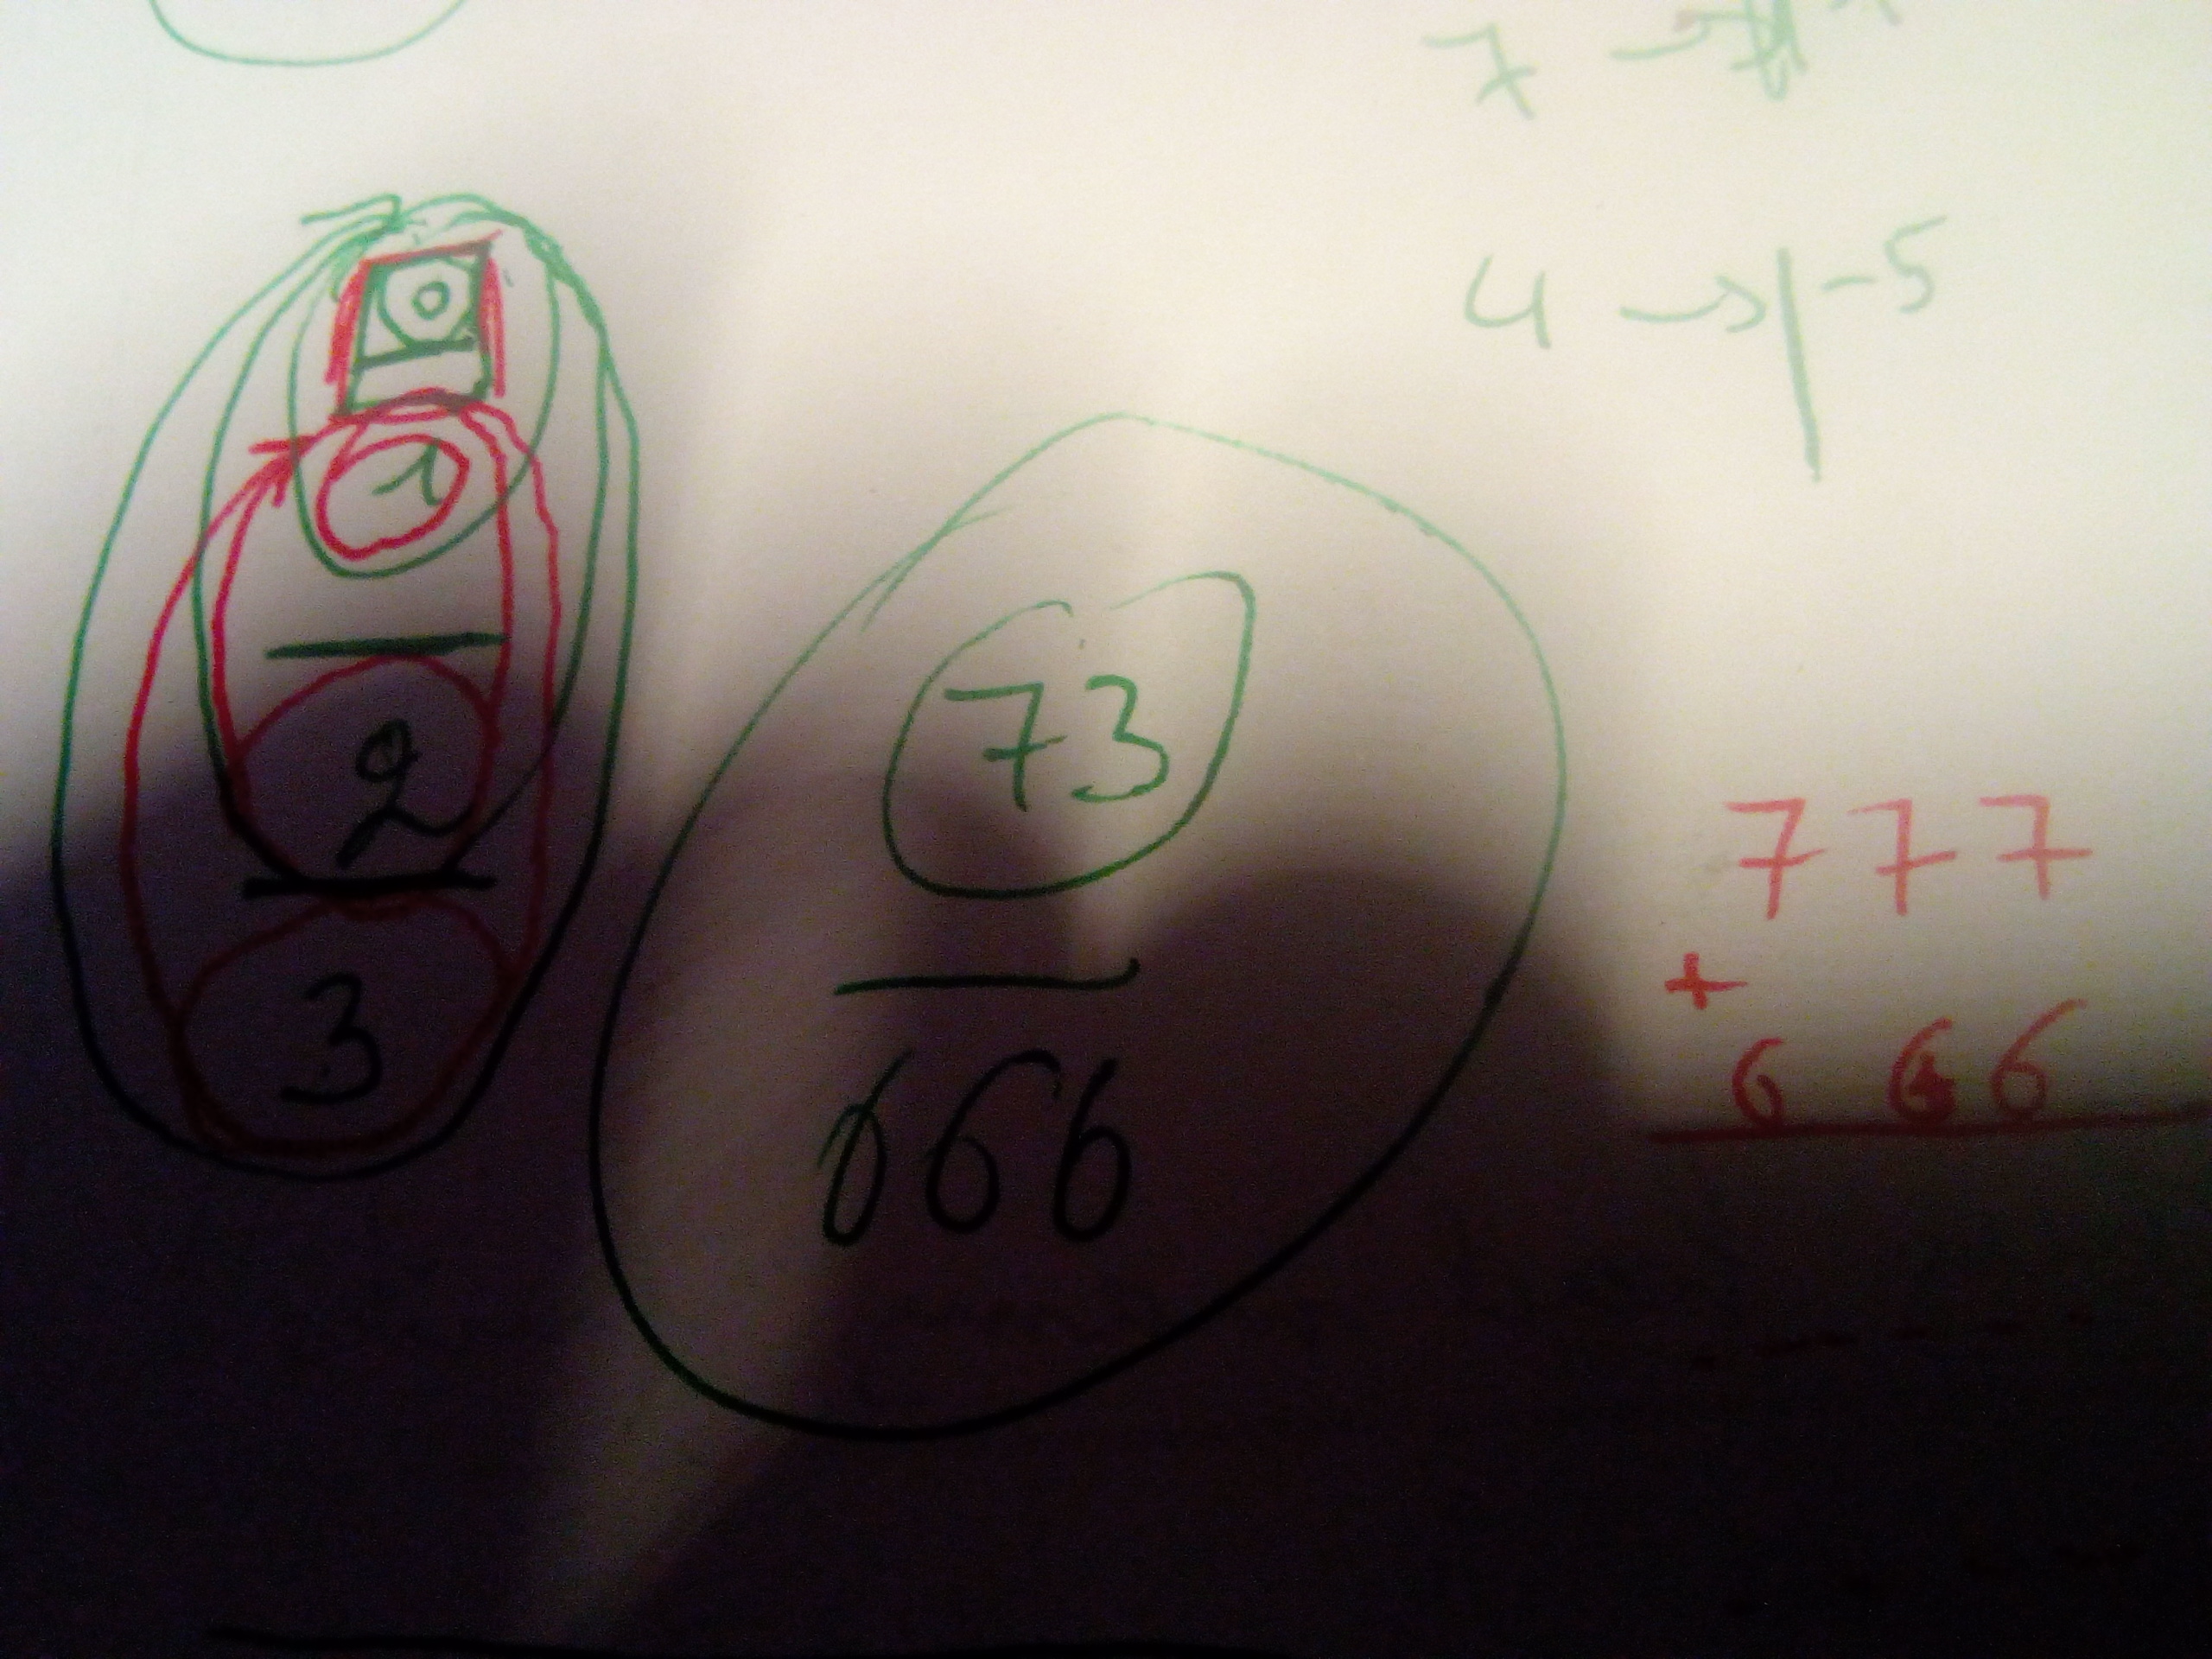 7 →
4 → | -5
0
1
2
3
73
666
777
+
666